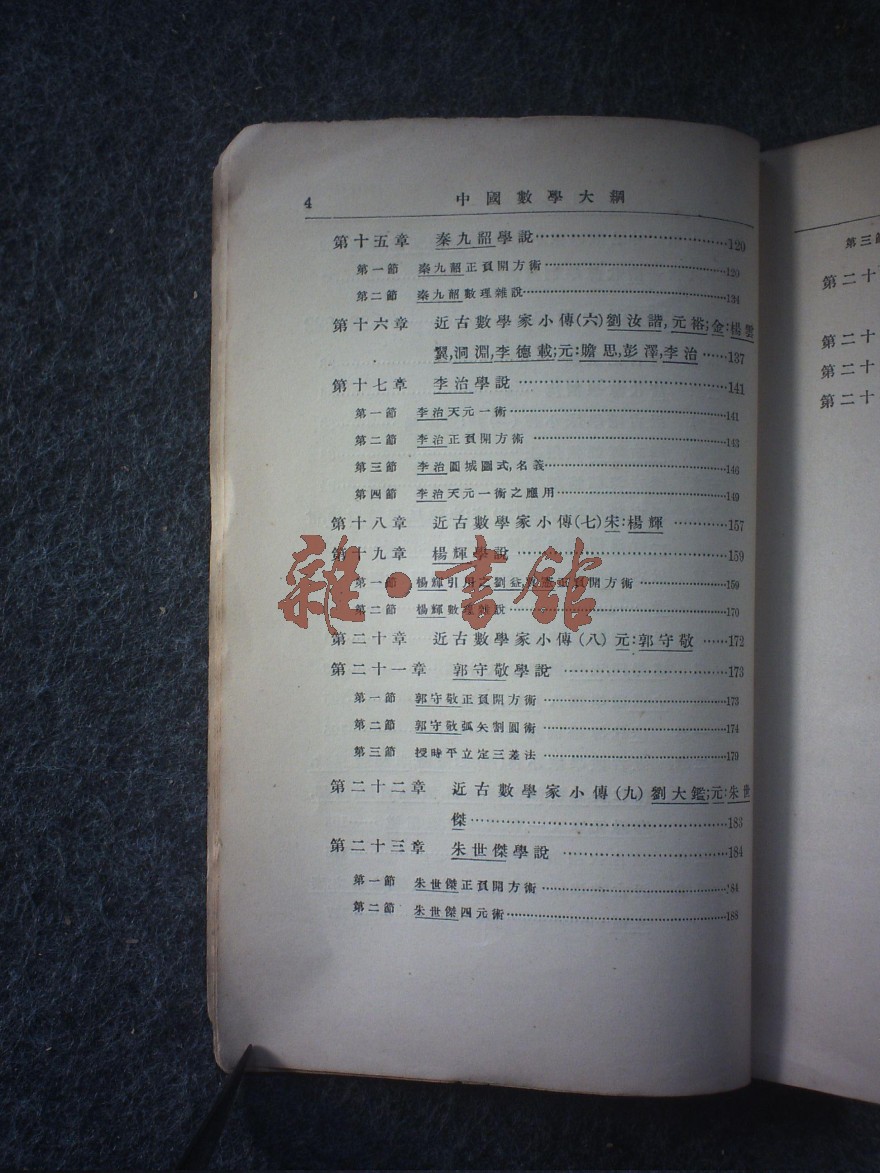 4 中國數學大綱
第十五章 秦九韶學說……120
第一節 秦九韶正負開方術……120
第二節 秦九韶數理雜說……134
第十六章 近古數學家小傳(六)劉汝諧,元裕;金:楊雲
翼,洞淵,李德載;元:贍思,彭澤,李治……137
第十七章 李治學說……141
第一節 李治天元一術……141
第二節 李治正負開方術……143
第三節 李治圓城圖式,名義……146
第四節 李治天元一術之應用……149
第十八章 近古數學家小傳(七)宋:楊輝……157
第十九章 楊輝學說……159
第一節 楊輝引用之劉益,正負開方術……159
第二節 楊輝數理雜說……170
第二十章 近古數學家小傳(八)元:郭守敬……172
第二十一章 郭守敬學說……173
第一節 郭守敬正負開方術……173
第二節 郭守敬弧矢割圓術……174
第三節 授時平立定三差法……179
第二十二章 近古數學家小傳(九)劉大鑑;元:朱世
傑……183
第二十三章 朱世傑學說……184
第一節 朱世傑正負開方術……184
第二節 朱世傑四元術……188
雜·書館
第三節
第二十
第二十
第二十
第二十